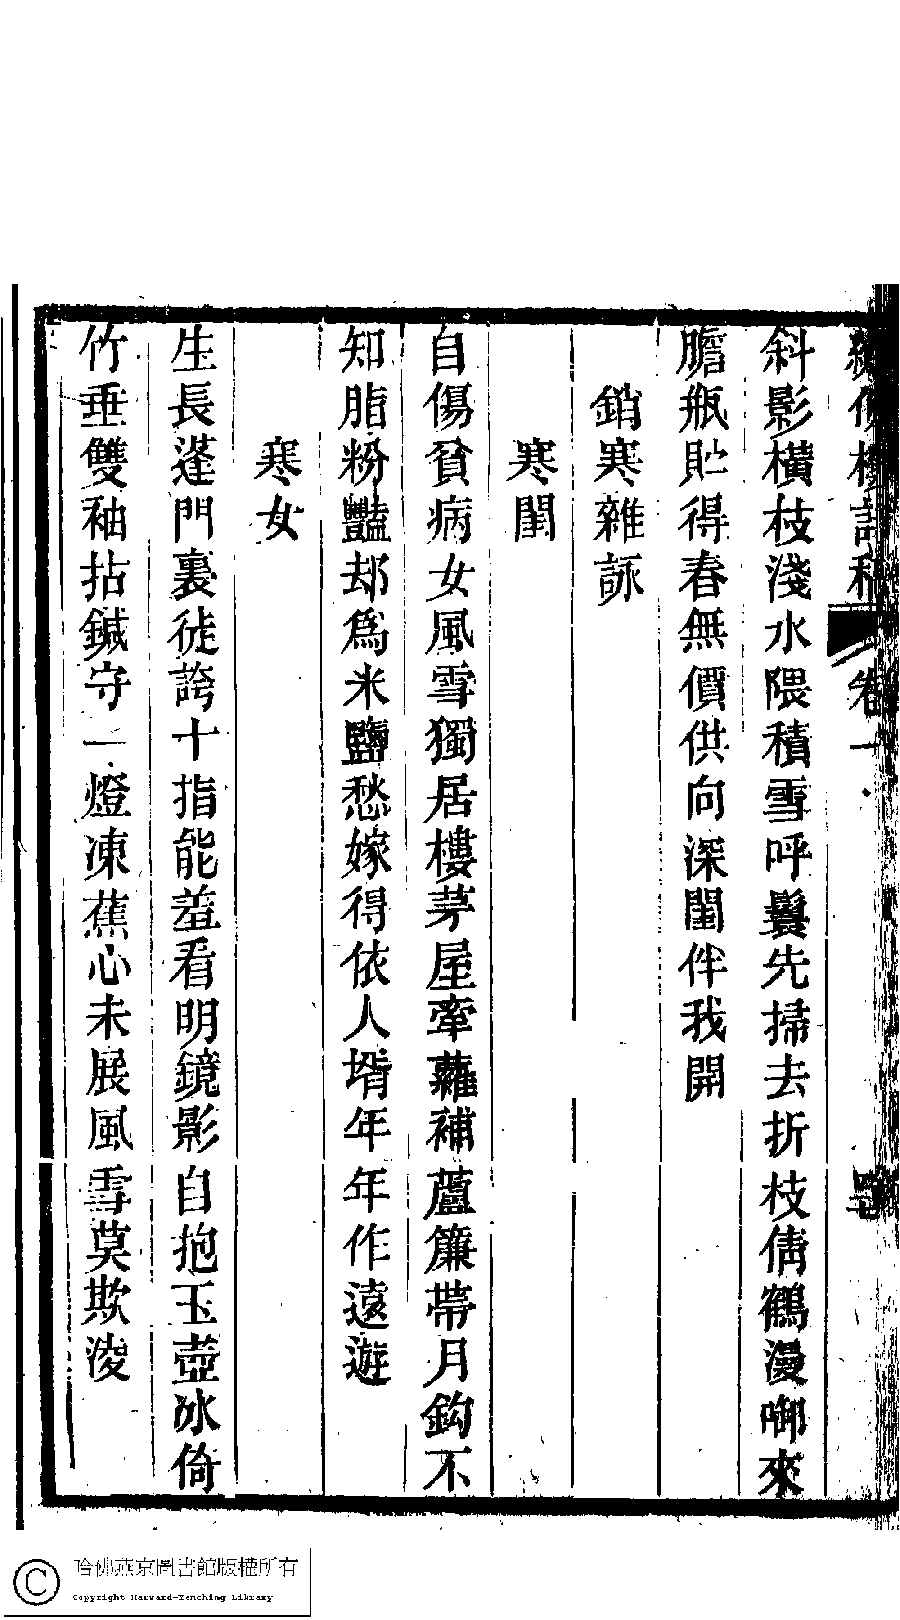 繡佛樓詩稿 卷一
斜影橫枝淺水隈積雪呼鬟先掃去折枝倩鶴漫啣來
膽瓶貯得春無價供向深閨伴我開
銷寒雜詠
寒閨
自傷貧病女風雪獨居樓茅屋牽蘿補蘆簾帶月鈎不
知脂粉豔却爲米鹽愁嫁得依人壻年年作遠遊
寒女
生長蓬門裏徒誇十指能羞看明鏡影自抱玉壺冰倚
竹垂雙袖拈鍼守一燈凍蕉心未展風雪莫欺淩
哈佛燕京圖書館版權所有
Copyright Harvard-Yenching Library